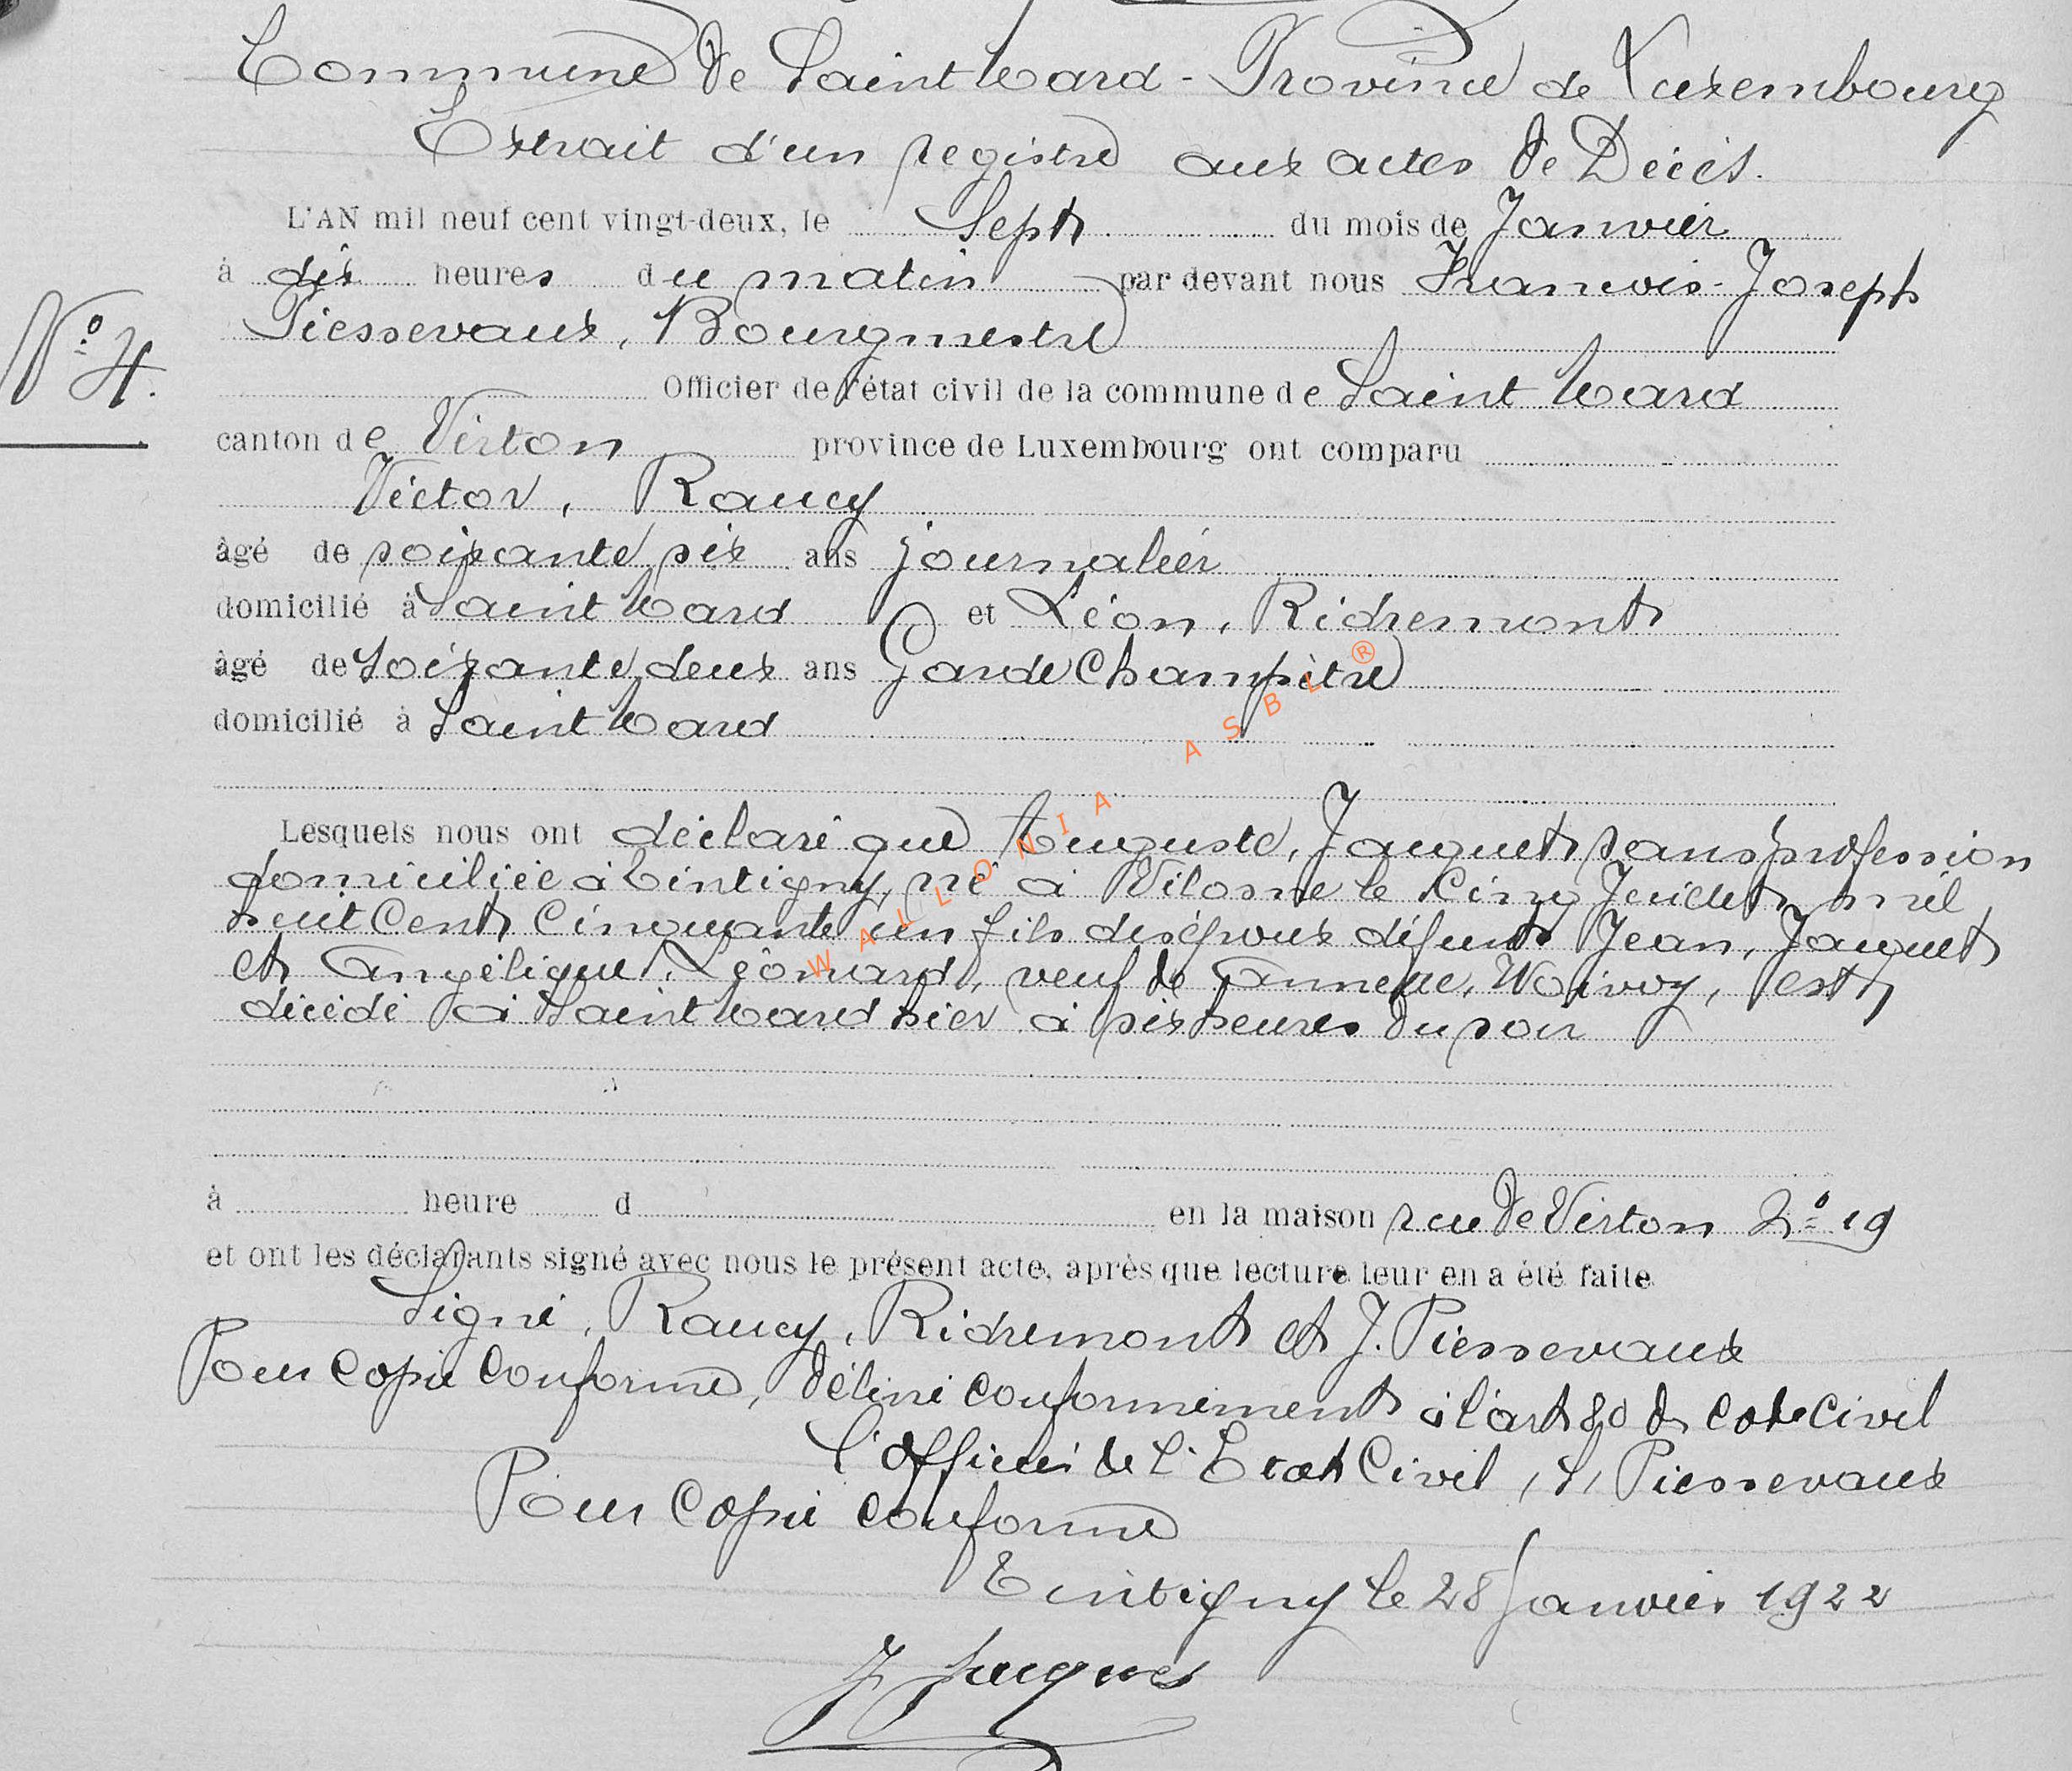 Commune de Saint Mard - Province de Luxembourg
Extrait d'un registre aux actes de Décès.
L'AN mil neuf cent vingt-deux, le Sept du mois de Janvier
à dix heures du matin par devant nous Francois-Joseph
Piessevaux, Bourgmestre
N° 4.
Officier de l'état civil de la commune de Saint Mard
canton de Virton province de Luxembourg ont comparu
Victor, Raucy
âgé de soixante six ans journalier
domicilié à Saint Mard et Léon, Richremont
âgé de Soixante deux ans Garde Champêtre
domicilié à Saint Mard
Lesquels nous ont déclaré que Auguste, Jaquet sans profession
domiciliée à Tintigny, né à Vilosne le Cinq Juillet mil
huit Cent Cinquante un fils des époux défunts Jean, Jaquet
et Angélique, Léonard, veuf de Annette, Woivry, est
décédé à Saint Mard hier à six heures du soir
à heure d en la maison rue de Virton 2° 19
et ont les déclarants signé avec nous le présent acte, après que lecture leur en a été faite
Signé, Raucy, Richremont et J. Piessevaux
Pour Copie Conforme, Délivré conformément à l'art 80 du Code Civil
L'Officier de l'Etat Civil, (s) Piessevaux
Pour Copie conforme
Tintigny le 28 Janvier 1922
J Jacques
WALLONIA ASBL ®